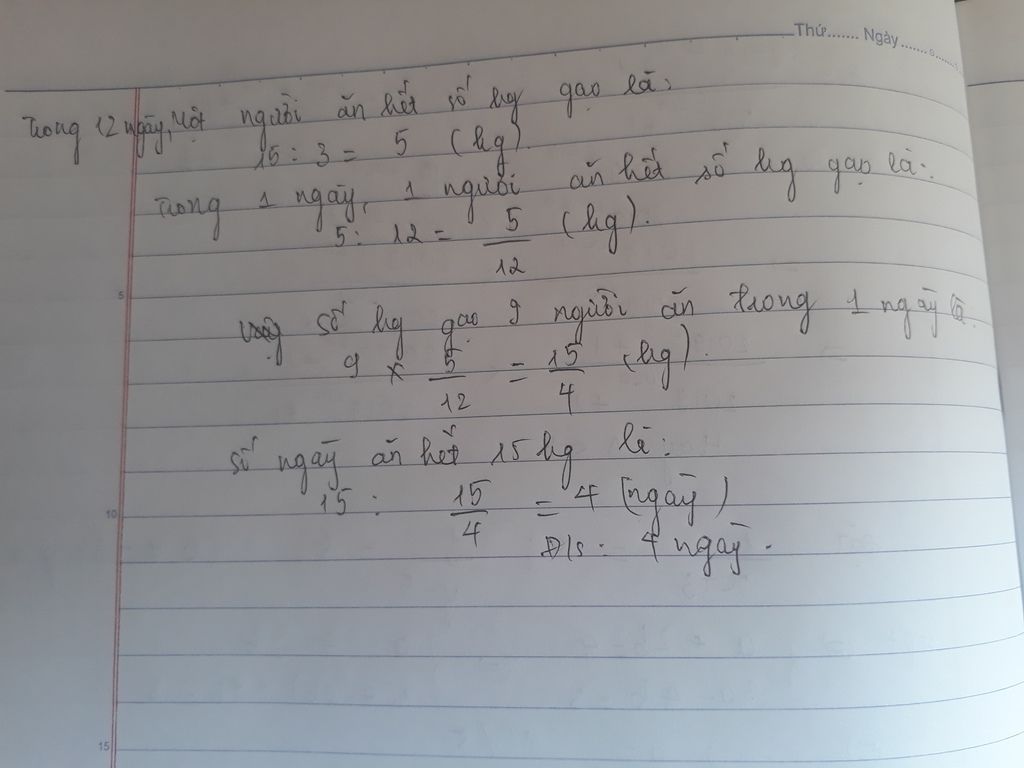 Thứ....... Ngày.......
Trong 12 ngày, Một người ăn hết số kg gạo là:
15 : 3 = 5 (kg).
Trong 1 ngày, 1 người ăn hết số kg gạo là:
5 : 12 = 5/12 (kg).
5
Vậy số kg gạo 9 người ăn trong 1 ngày là.
9 x 5/12 = 15/4 (kg).
số ngày ăn hết 15 kg là:
15 : 15/4 = 4 (ngày)
10
Đ/s: 4 ngày.
15